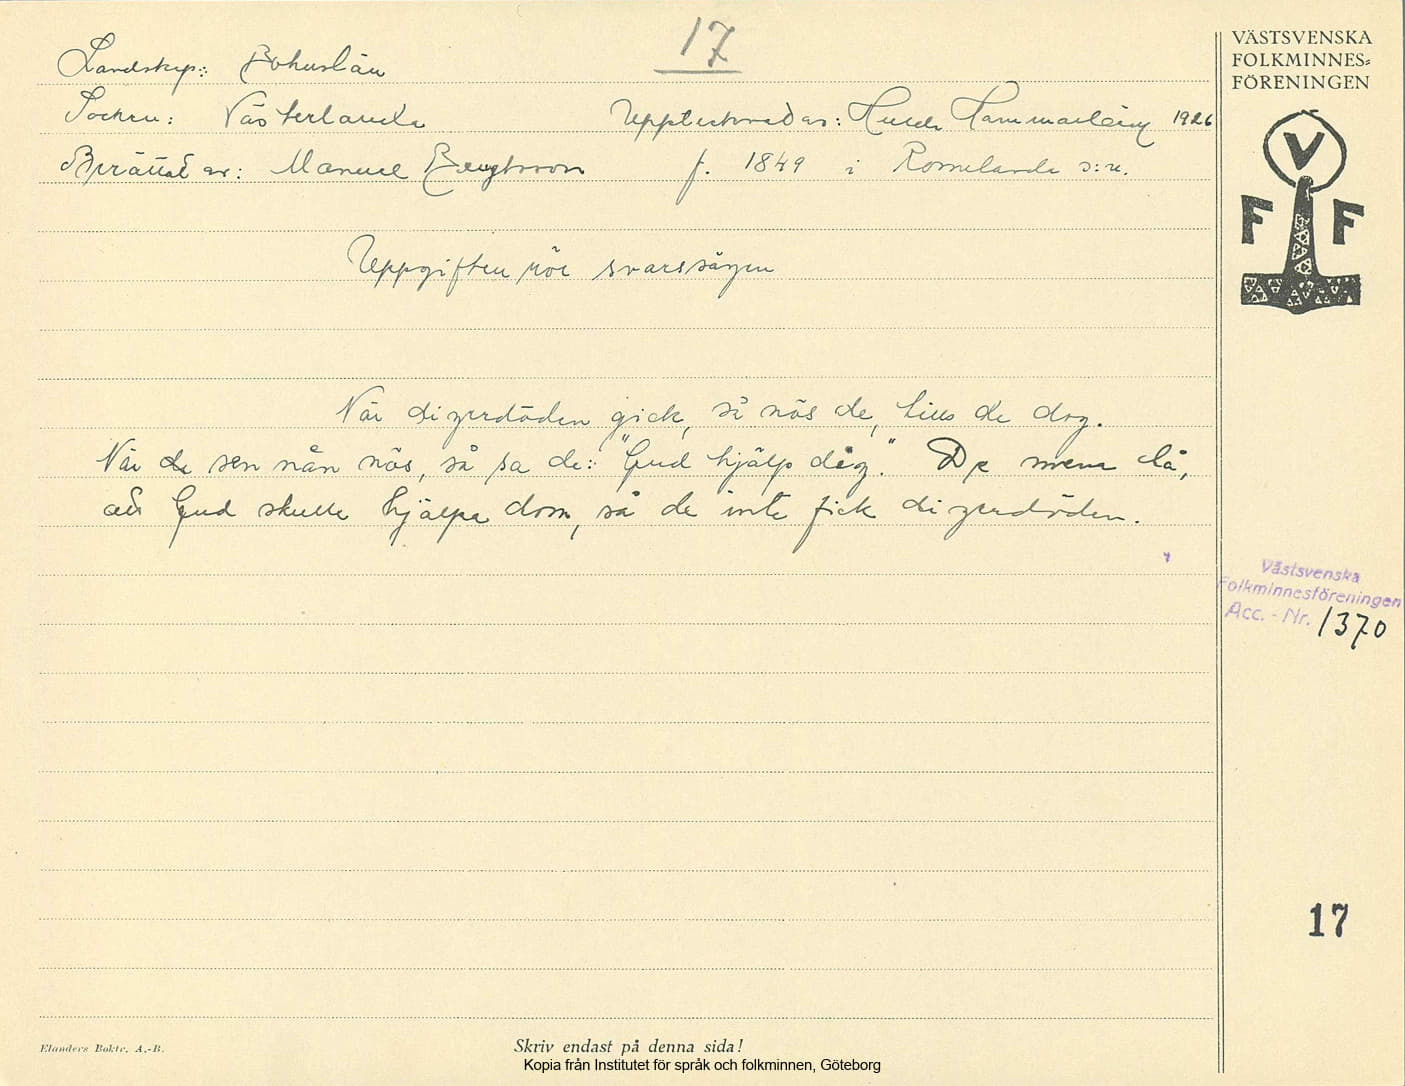 17
VÄSTSVENSKA
FOLKMINNES=
FÖRENINGEN
V
F F
Landskap: Bohuslän
Socken: Västerlanda Upptecknad av: Hammarberg 1926
Berättat av: Manuel Bengtsson f. 1849 i Romelanda s:n.
Uppgiften rör svarssägen
När digerdöden gick, så nös de, tills de dog.
När de sen nån nös, så sa de: "Gud hjälp dig." De mena då,
att Gud skulle hjälpa dom, så de inte fick digerdöden.
Västsvenska
Folkminnesföreningen
Acc. - Nr. 1370
17
Elanders Boktr. A.-B.
Skriv endast på denna sida!
Kopia från Institutet för språk och folkminnen, Göteborg